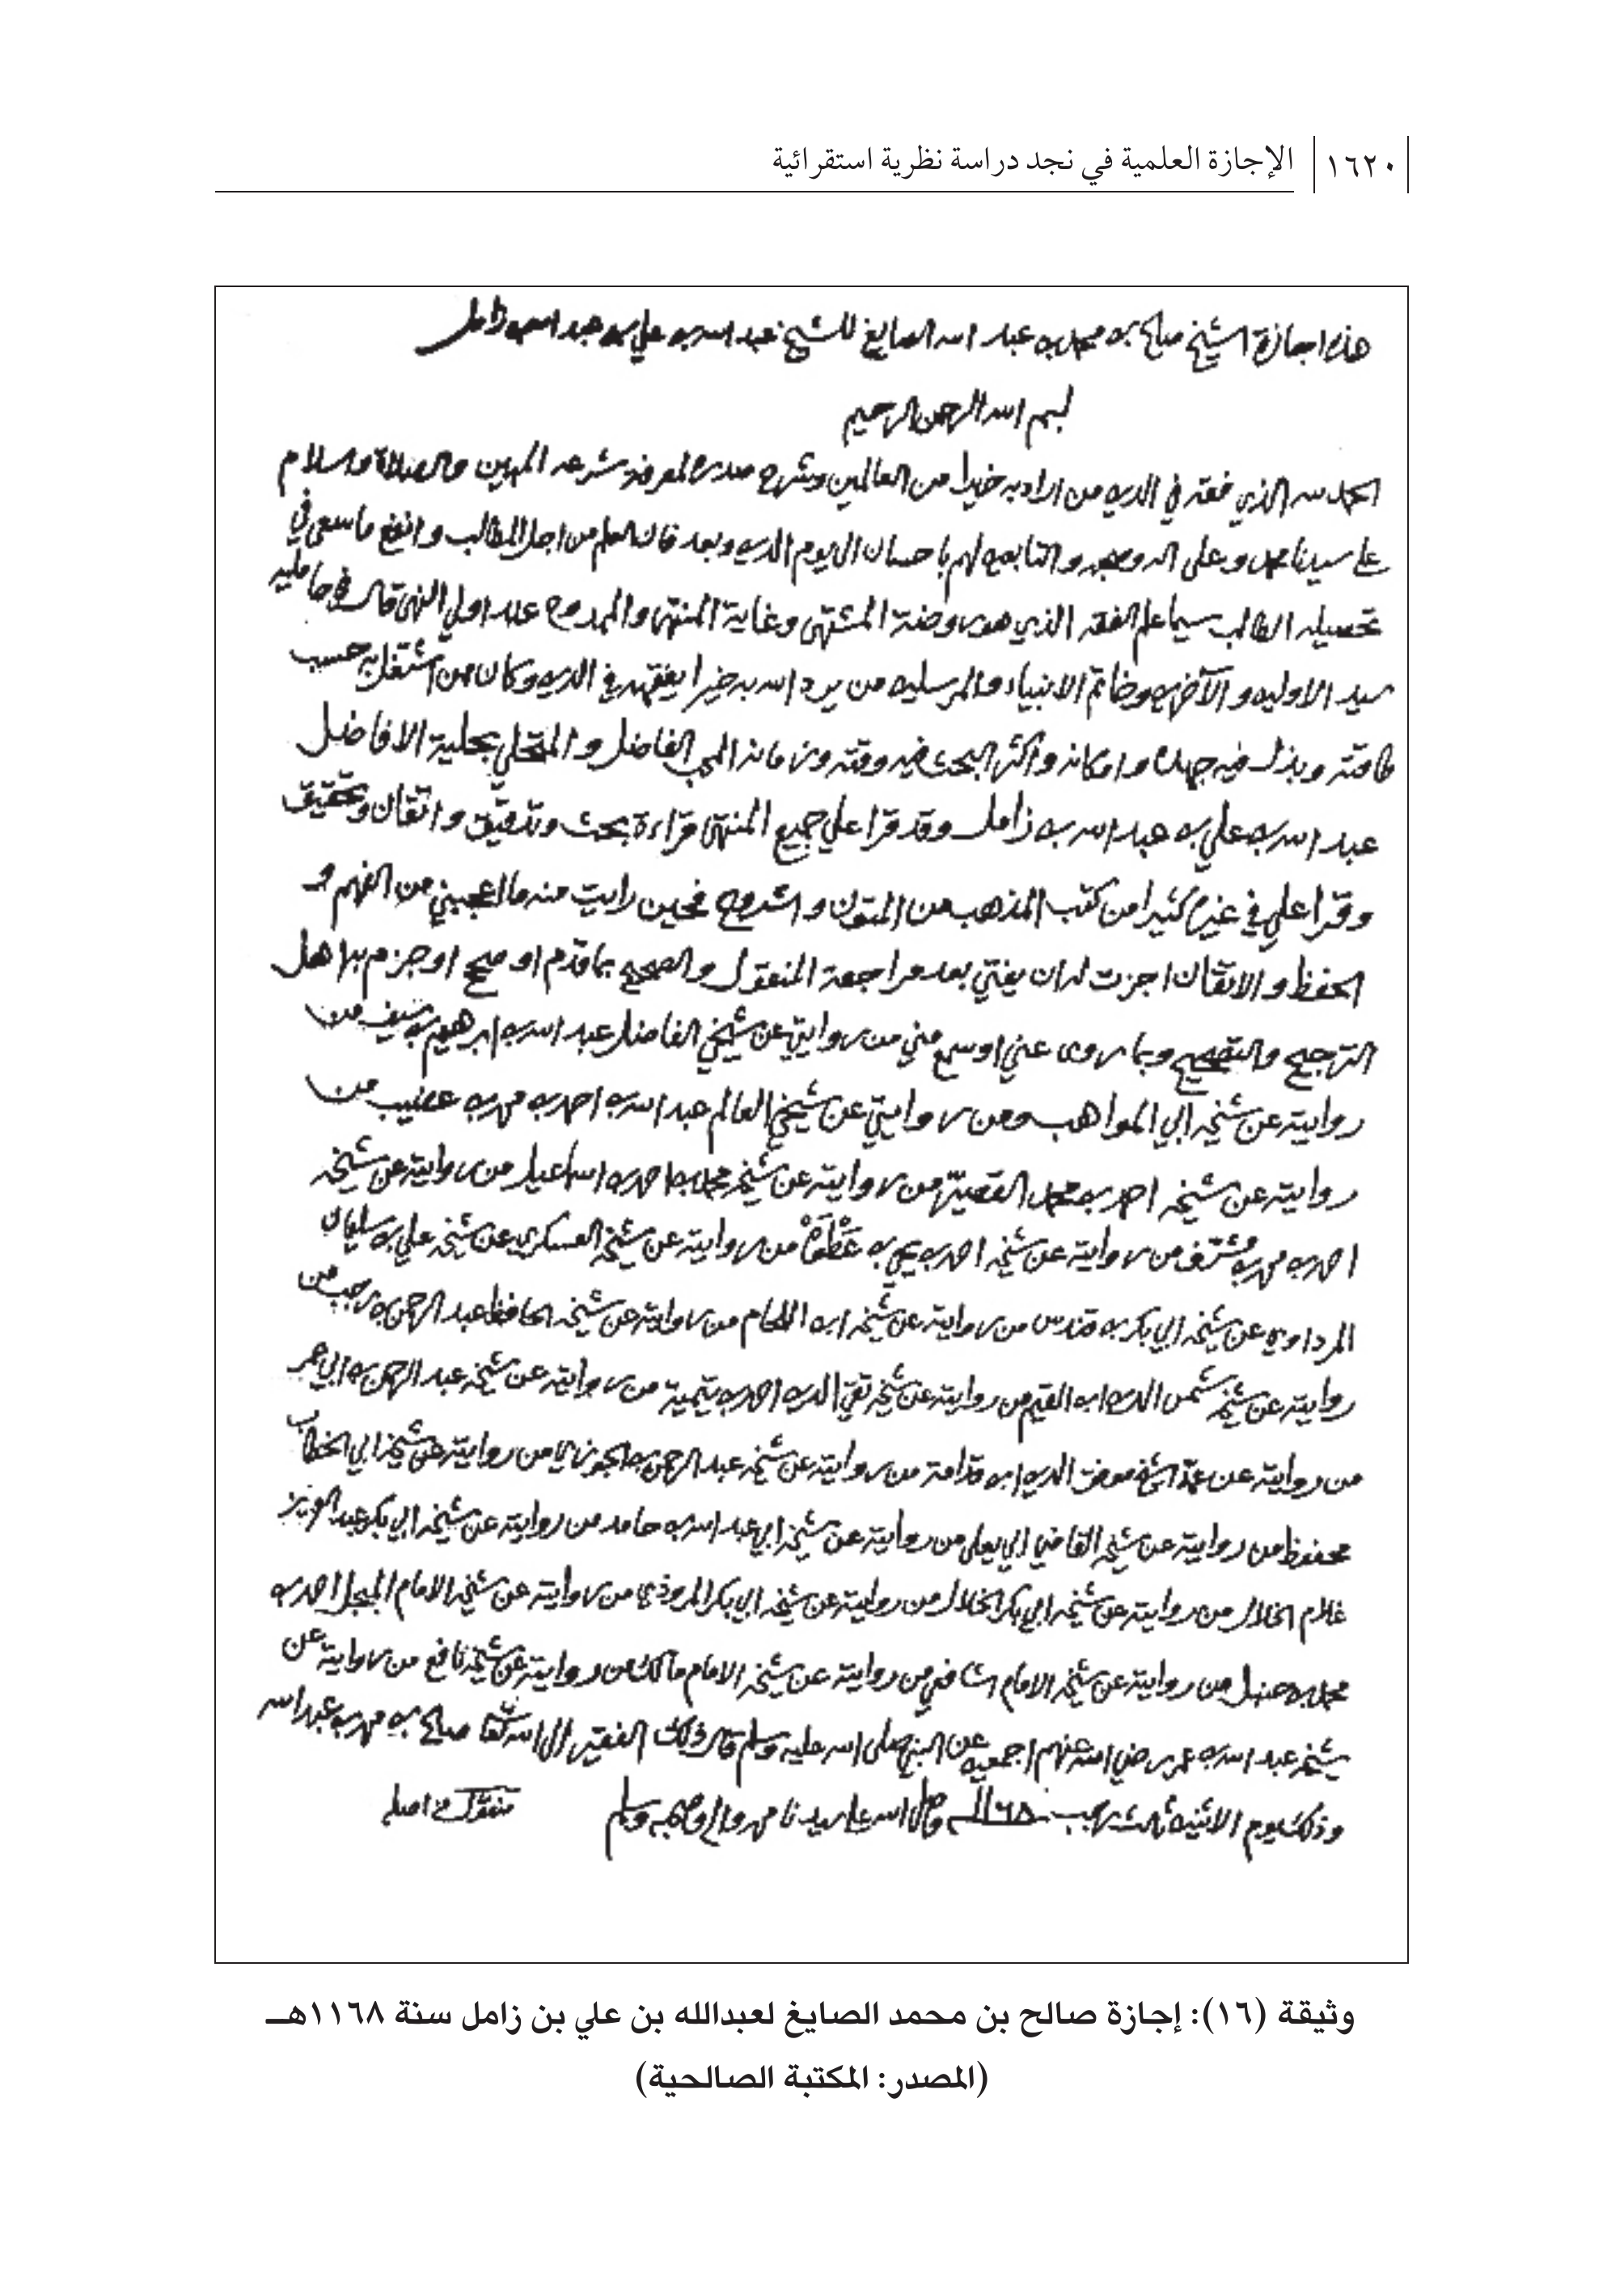 ١٦٢٠ الإجازة العلمية في نجد دراسة نظرية استقرائية
هذه اجازة الشيخ صالح بن محمد بن عبد الله الصايغ للشيخ عبد الله بن علي بن عبد الله بن زامل
بسم الله الرحمن الرحيم
الحمد لله الذي فقه في الدين من اراد به خيرا من العالمين وشرح صدره لمعرفة شرعه المبين والصلاة والسلام
على سيدنا محمد وعلى اله وصحبه والتابعين لهم باحسان الى يوم الدين وبعد فان العلم من اجل المطالب وانفع ما سعى في
تحصيله الطالب سيما علم الفقه الذي هو روضة المشتهى وغاية المنتهى والممدوح عند اولي النهى قال في حامليه
سيد الاولين والآخرين وخاتم الانبياء والمرسلين من يرد الله به خيرا يفقهه في الدين وكان ممن اشتغل به حسب
طاقته وبذل فيه جهده وامكانه واكثر البحث فيه وقته وزمانه المحب الفاضل والمتحلي بحلية الافاضل
عبد الله بن علي بن عبد الله بن زامل وقد قرا علي جميع المنتهى قراءة بحث وتدقيق واتقان وتحقيق
وقرا علي في غيره كثيرا من كتب المذهب من المتون والشروح فحين رايت منه ما اعجبني من الفهم و
الحفظ والاتقان اجزت له ان يفتي بعد مراجعة المنقول والصحيح بما قدم او صحح او جزم به اهل
الترجيح والتصحيح وبما روى عني او سمع مني من روايتي عن شيخي الفاضل عبد الله بن ابرهيم بن سيف من
روايته عن شيخه ابي المواهب ومن روايتي عن شيخي العالم عبد الله بن احمد بن محمد بن عضيب من
روايته عن شيخه احمد بن محمد القصير من روايته عن شيخه محمد بن احمد بن اسماعيل من روايته عن شيخه
احمد بن محمد بن مشرف من روايته عن شيخه احمد بن يحيى بن عَطْوَةْ من روايته عن شيخه العسكري عن شيخه علي بن سليمان
المرداوي عن شيخه ابي بكر بن قندس من روايته عن شيخه ابن اللحام من روايته عن شيخه الحافظ عبد الرحمن بن رجب من
روايته عن شيخه شمس الدين ابن القيم من روايته عن شيخه تقي الدين احمد بن تيمية من روايته عن شيخه عبد الرحمن بن ابي عمر
من روايته عن عمه الشيخ موفق الدين ابن قدامة من روايته عن شيخه عبد الرحمن بن الجوزي من روايته عن شيخه ابي الخطاب
محفوظ من روايته عن شيخه القاضي ابي يعلى من روايته عن شيخه ابي عبد الله بن حامد من روايته عن شيخه ابي بكر عبد العزيز
غلام الخلال من روايته عن شيخه ابي بكر الخلال من روايته عن شيخه ابي بكر المروذي من روايته عن شيخه الامام المبجل احمد بن
محمد بن حنبل من روايته عن شيخه الامام الشافعي من روايته عن شيخه الامام مالك من روايته عن شيخه نافع من روايته عن
شيخه عبد الله بن عمر رضي الله عنهم اجمعين عن النبي صلى الله عليه وسلم قال ذلك الفقير الى الله تعالى صالح بن محمد بن عبد الله
وذلك يوم الاثنين ثالث رجب ١١٦٨ وصلى الله على سيدنا محمد واله وصحبه وسلم منقول من اصله
وثيقة (١٦): إجازة صالح بن محمد الصايغ لعبدالله بن علي بن زامل سنة ١١٦٨هـ
(المصدر: المكتبة الصالحية)